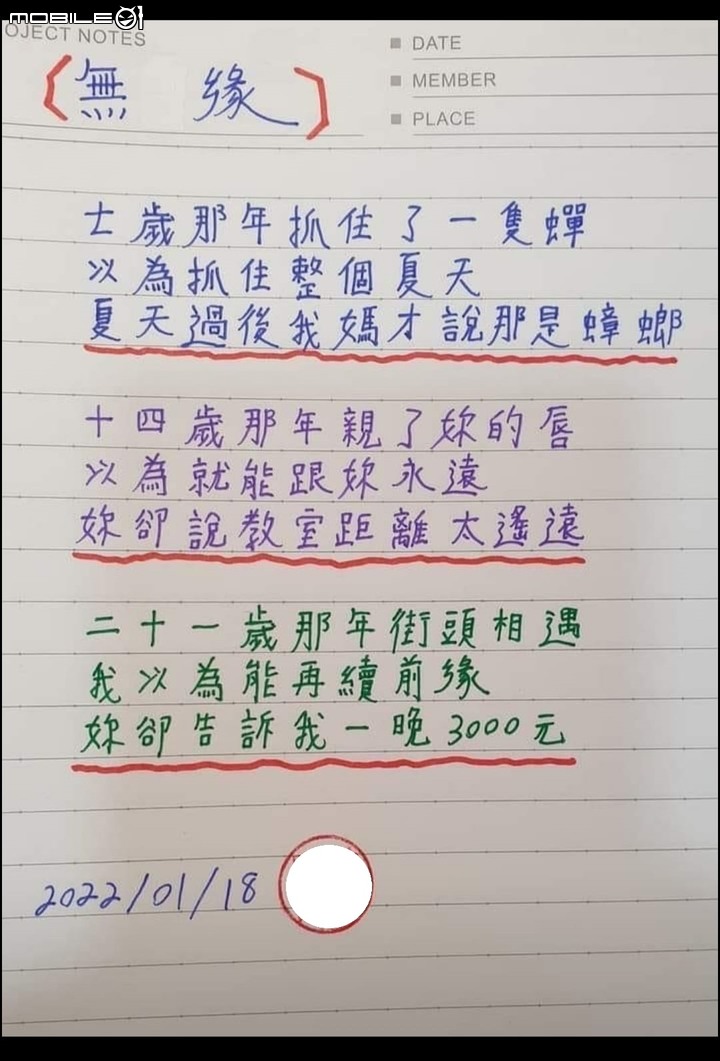 MOBILE01
OJECT NOTES
DATE
MEMBER
PLACE
〔無 緣〕
七歲那年抓住了一隻蟬
以為抓住整個夏天
夏天過後我媽才說那是蟑螂
十四歲那年親了妳的唇
以為就能跟妳永遠
妳卻說教室距離太遙遠
二十一歲那年街頭相遇
我以為能再續前緣
妳卻告訴我一晚3000元
2022/01/18